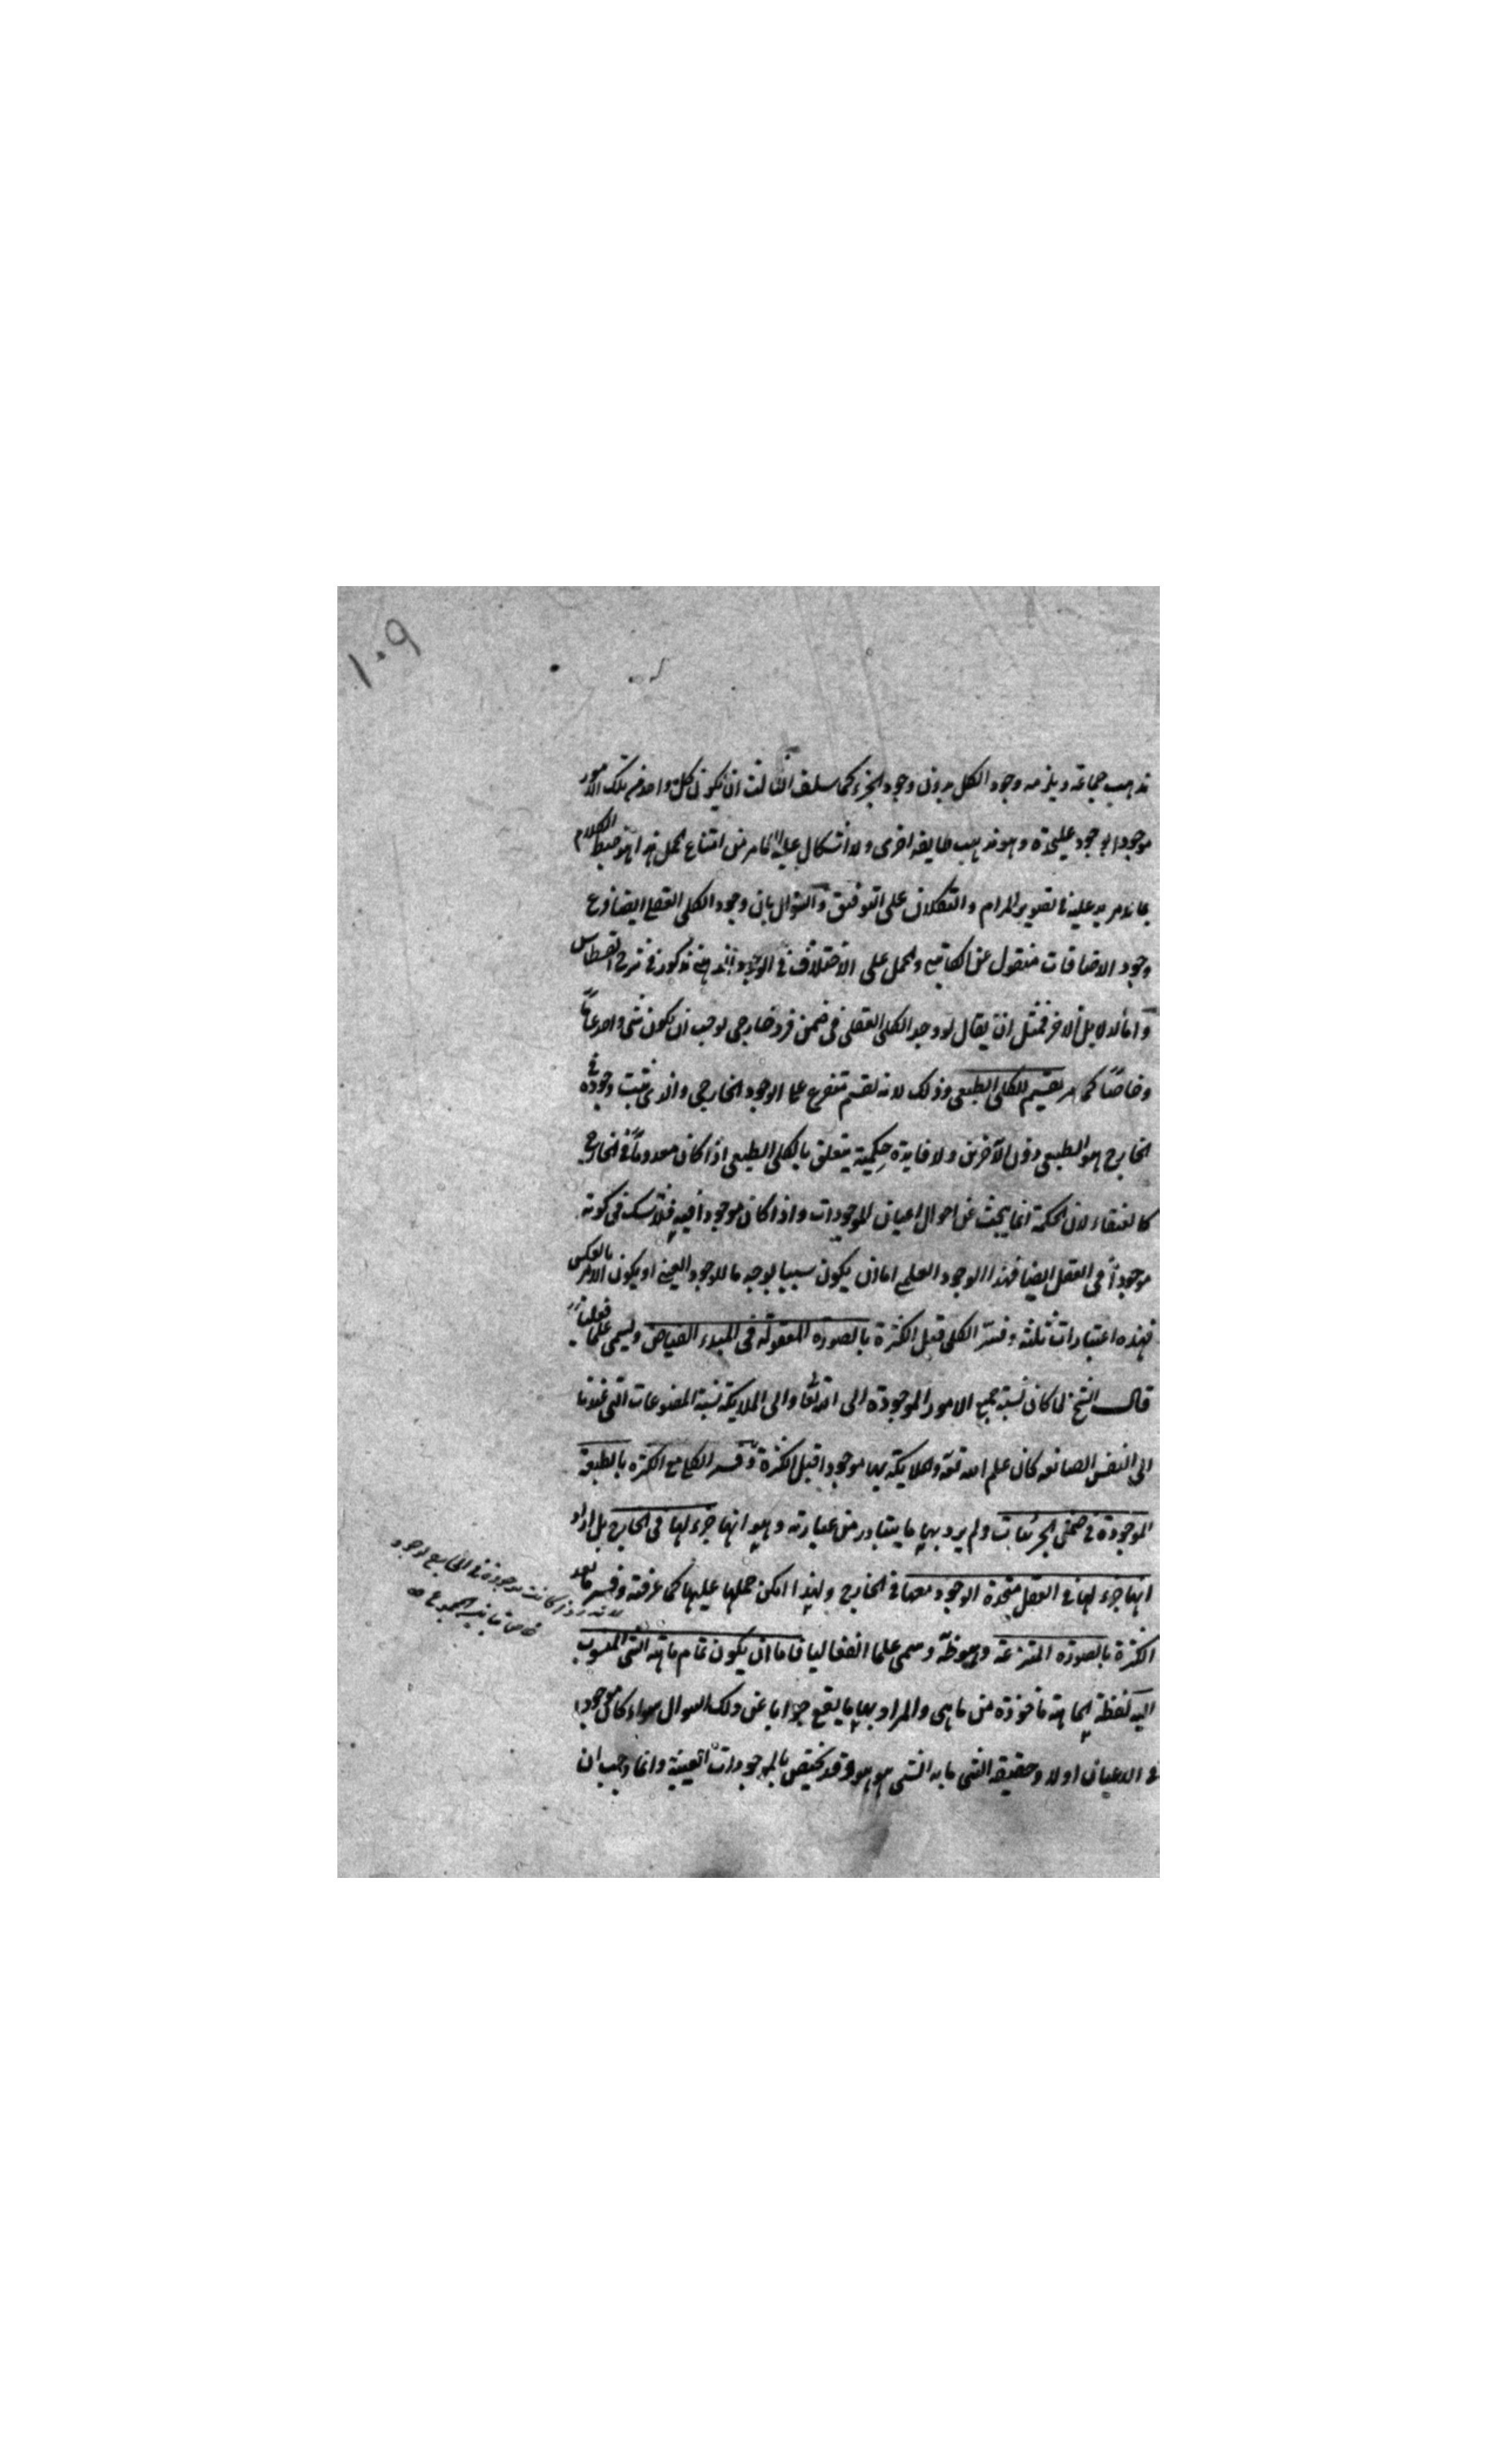 ١٠٩
مذهب جماعة ويلزمه وجود الكل بدون وجود الجزء كما سلف الثالث ان يكون كل واحد من تلك الامور
موجودا بوجود عليحدة وهو مذهب طايفة اخرى ولا اشكال عليه الا مامر من امتناع الحمل هذا هو ضبط الكلام
بما لا مزيد عليه في تصوير المرام والتكلان على التوفيق والسؤال بان وجود الكلي العقلي ايضا فرع
وجود الاضافات منقول عن الكاتبي والحمل على الاختلاف في الوجود الذهني مذكور في شرح القسطاس
واما الدلايل الاخر فمثل ان يقال لو وجد الكلي العقلي في ضمن فرد خارجي لوجب ان يكون شي واحد عاما
وخاصا كما مر تقسيم للكلي الطبيعي وذلك لانه تقسيم متفرع على الوجود الخارجي والذي ثبت وجوده في
الخارج هو الطبيعي دون الآخرين ولا فايدة حكمية يتعلق بالكلي الطبيعي اذا كان معدوما في الخارج
كالعنقاء لان الحكمة انما يبحث عن احوال اعيان الموجودات واذا كان موجودا فيه فلا شك في كونه
موجودا في العقل ايضا فهذا الوجود العلمي اما ان يكون سببا بوجه ما للوجود العيني او يكون الامر بالعكس
فهذه اعتبارات ثلثة وفسر الكلي قبل الكثرة بالصورة المعقولة في المبدء الفياض ويسمى علما فعليا
قال الشيخ لما كان نسبة جميع الامور الموجودة الى الله تعا والى الملايكة نسبة المصنوعات التي عندنا
الى النفس الصانعه كان علم الله تعا والملايكة بها موجودا قبل الكثرة وفسر الكلي مع الكثرة بالطبيعة
الموجودة في ضمن الجزئيات ولم يرد بها ما يتبادر من عبارته وهو انها جزء لها في الخارج بل اراد
انها جزء لها في العقل متحدة الوجود معها في الخارج ولهذا امكن حملها عليها كما عرفته وفسر ما بعد
الكثرة بالصورة المنتزعة وسمى علما انفعاليا فاما ان يكون تمام ماهية الشي المنسوب
اليه لفظة الماهية ماخوذة من ما هي والمراد بها ما يقع جوابا عن ذلك السوال سواء كان موجودا
في الاعيان اولا وحقيقة الشي ما به الشي هو هو وقد يختص بالموجودات العينية وانما وجب ان
كانت موجودة في الخارج